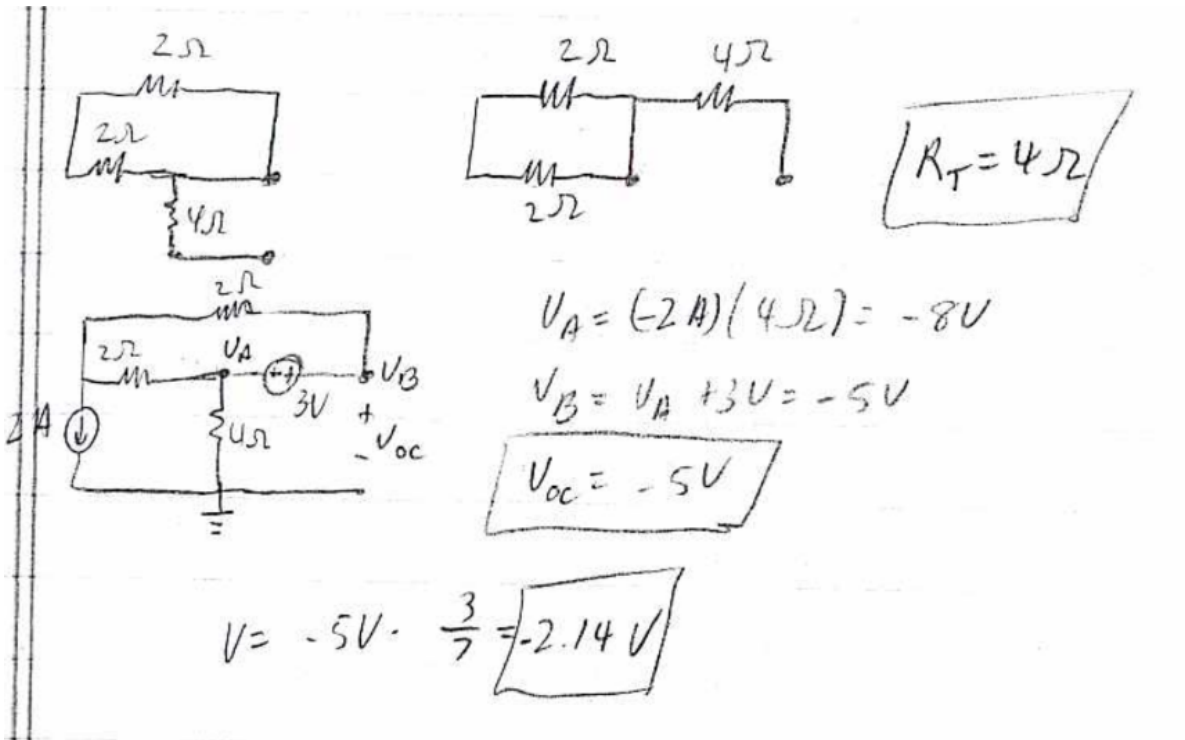 2Ω
2Ω
4Ω
2Ω 4Ω
2Ω
R_T = 4Ω
2Ω
2Ω
V_A
3V
V_B
+
- V_OC
4Ω
2A
V_A = (-2A)(4Ω) = -8V
V_B = V_A + 3V = -5V
V_OC = -5V
V = -5V · 3/7 = -2.14 V